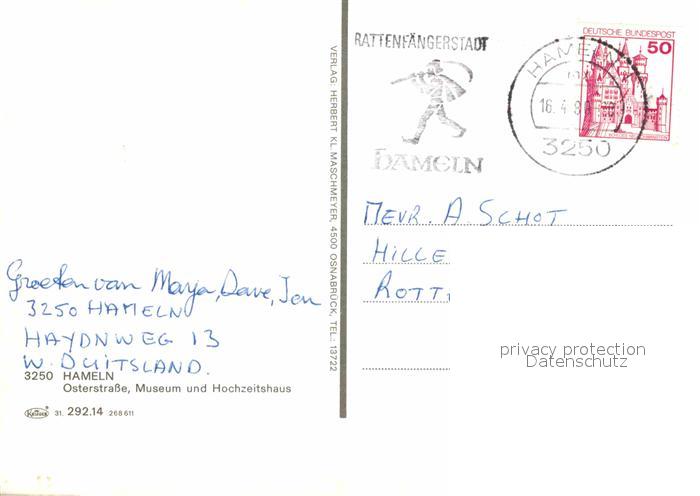 RATTENFÄNGERSTADT
HAMELN
DEUTSCHE BUNDESPOST
50
HAMELN
16.4.80
3250
VERLAG: HERBERT KL. MASCHMEYER, 4500 OSNABRÜCK, TEL.: 13722
MEVR. A. SCHOT
HILLE
ROTT
Groeten van Marja, Dave, Jan
3250 HAMELN
HAYDNWEG 13
W. DUITSLAND.
3250 HAMELN
Osterstraße, Museum und Hochzeitshaus
Krüger 31. 292.14 268611
privacy protection
Datenschutz